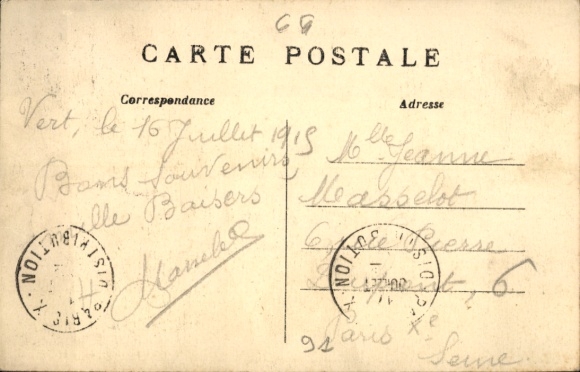 69
CARTE POSTALE
Correspondance
Adresse
Vert, le 16 Juillet 1915
Bons Souvenirs
Mille Baisers
Mlle Jeanne
Masselot
6, rue Pierre
Dupont, 6
Paris Xe
Seine
PARIS X. DISTRIBUTION
PARIS X. DISTRIBUTION
91